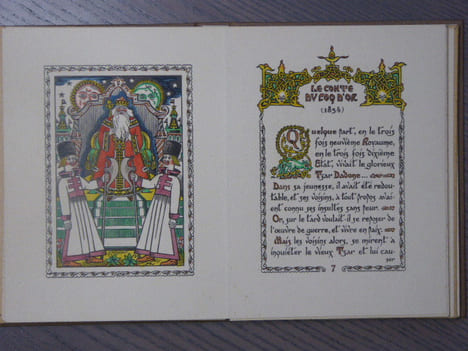 LE CONTE
DU COQ D'OR
(1834)
Quelque part, en le trois
fois neuvième Royaume,
en le trois fois dixième
Etat, vivait le glorieux
Tzar Dadone...
Dans sa jeunesse, il avait été redou-
table, et ses voisins, à tout propos avai-
ent connu ses insultes sans peur.
Or, sur le tard voulait-il se reposer de
l'œuvre de guerre, et vivre en paix.
Mais les voisins alors, se mirent à
inquiéter le vieux Tzar et lui cau-
ser
7